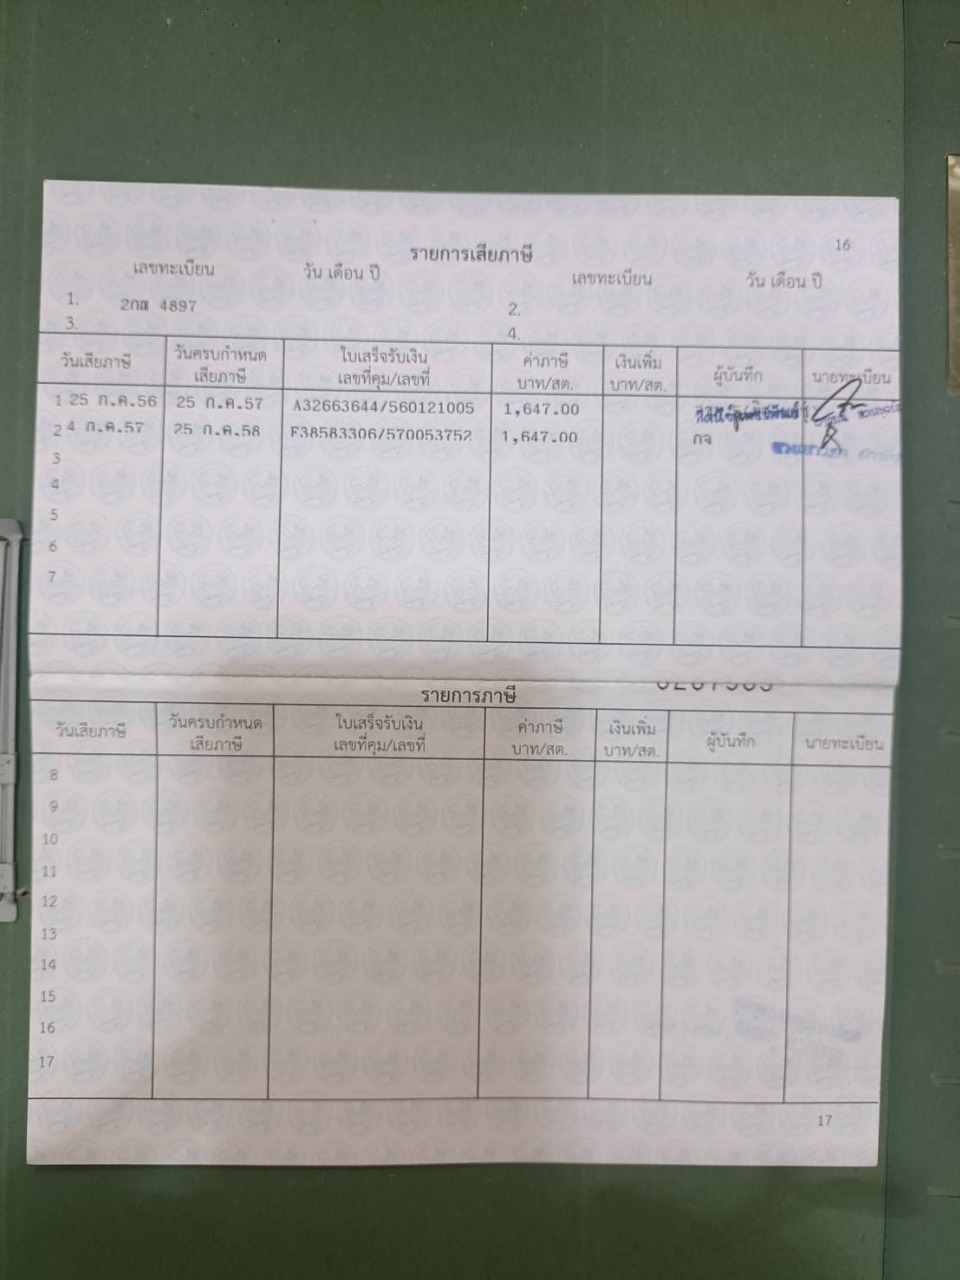 16
รายการเสียภาษี
เลขทะเบียน วัน เดือน ปี เลขทะเบียน วัน เดือน ปี
1. 2กต 4897 2.
3. 4.
วันเสียภาษี วันครบกำหนดเสียภาษี ใบเสร็จรับเงิน เลขที่คุม/เลขที่ ค่าภาษี บาท/สต. เงินเพิ่ม บาท/สต. ผู้บันทึก นายทะเบียน
1 25 ก.ค.56 25 ก.ค.57 A32663644/560121005 1,647.00
2 4 ก.ค.57 25 ก.ค.58 F38583306/570053752 1,647.00 กจ
3
4
5
6
7
รายการภาษี
วันเสียภาษี วันครบกำหนดเสียภาษี ใบเสร็จรับเงิน เลขที่คุม/เลขที่ ค่าภาษี บาท/สต. เงินเพิ่ม บาท/สต. ผู้บันทึก นายทะเบียน
8
9
10
11
12
13
14
15
16
17
17